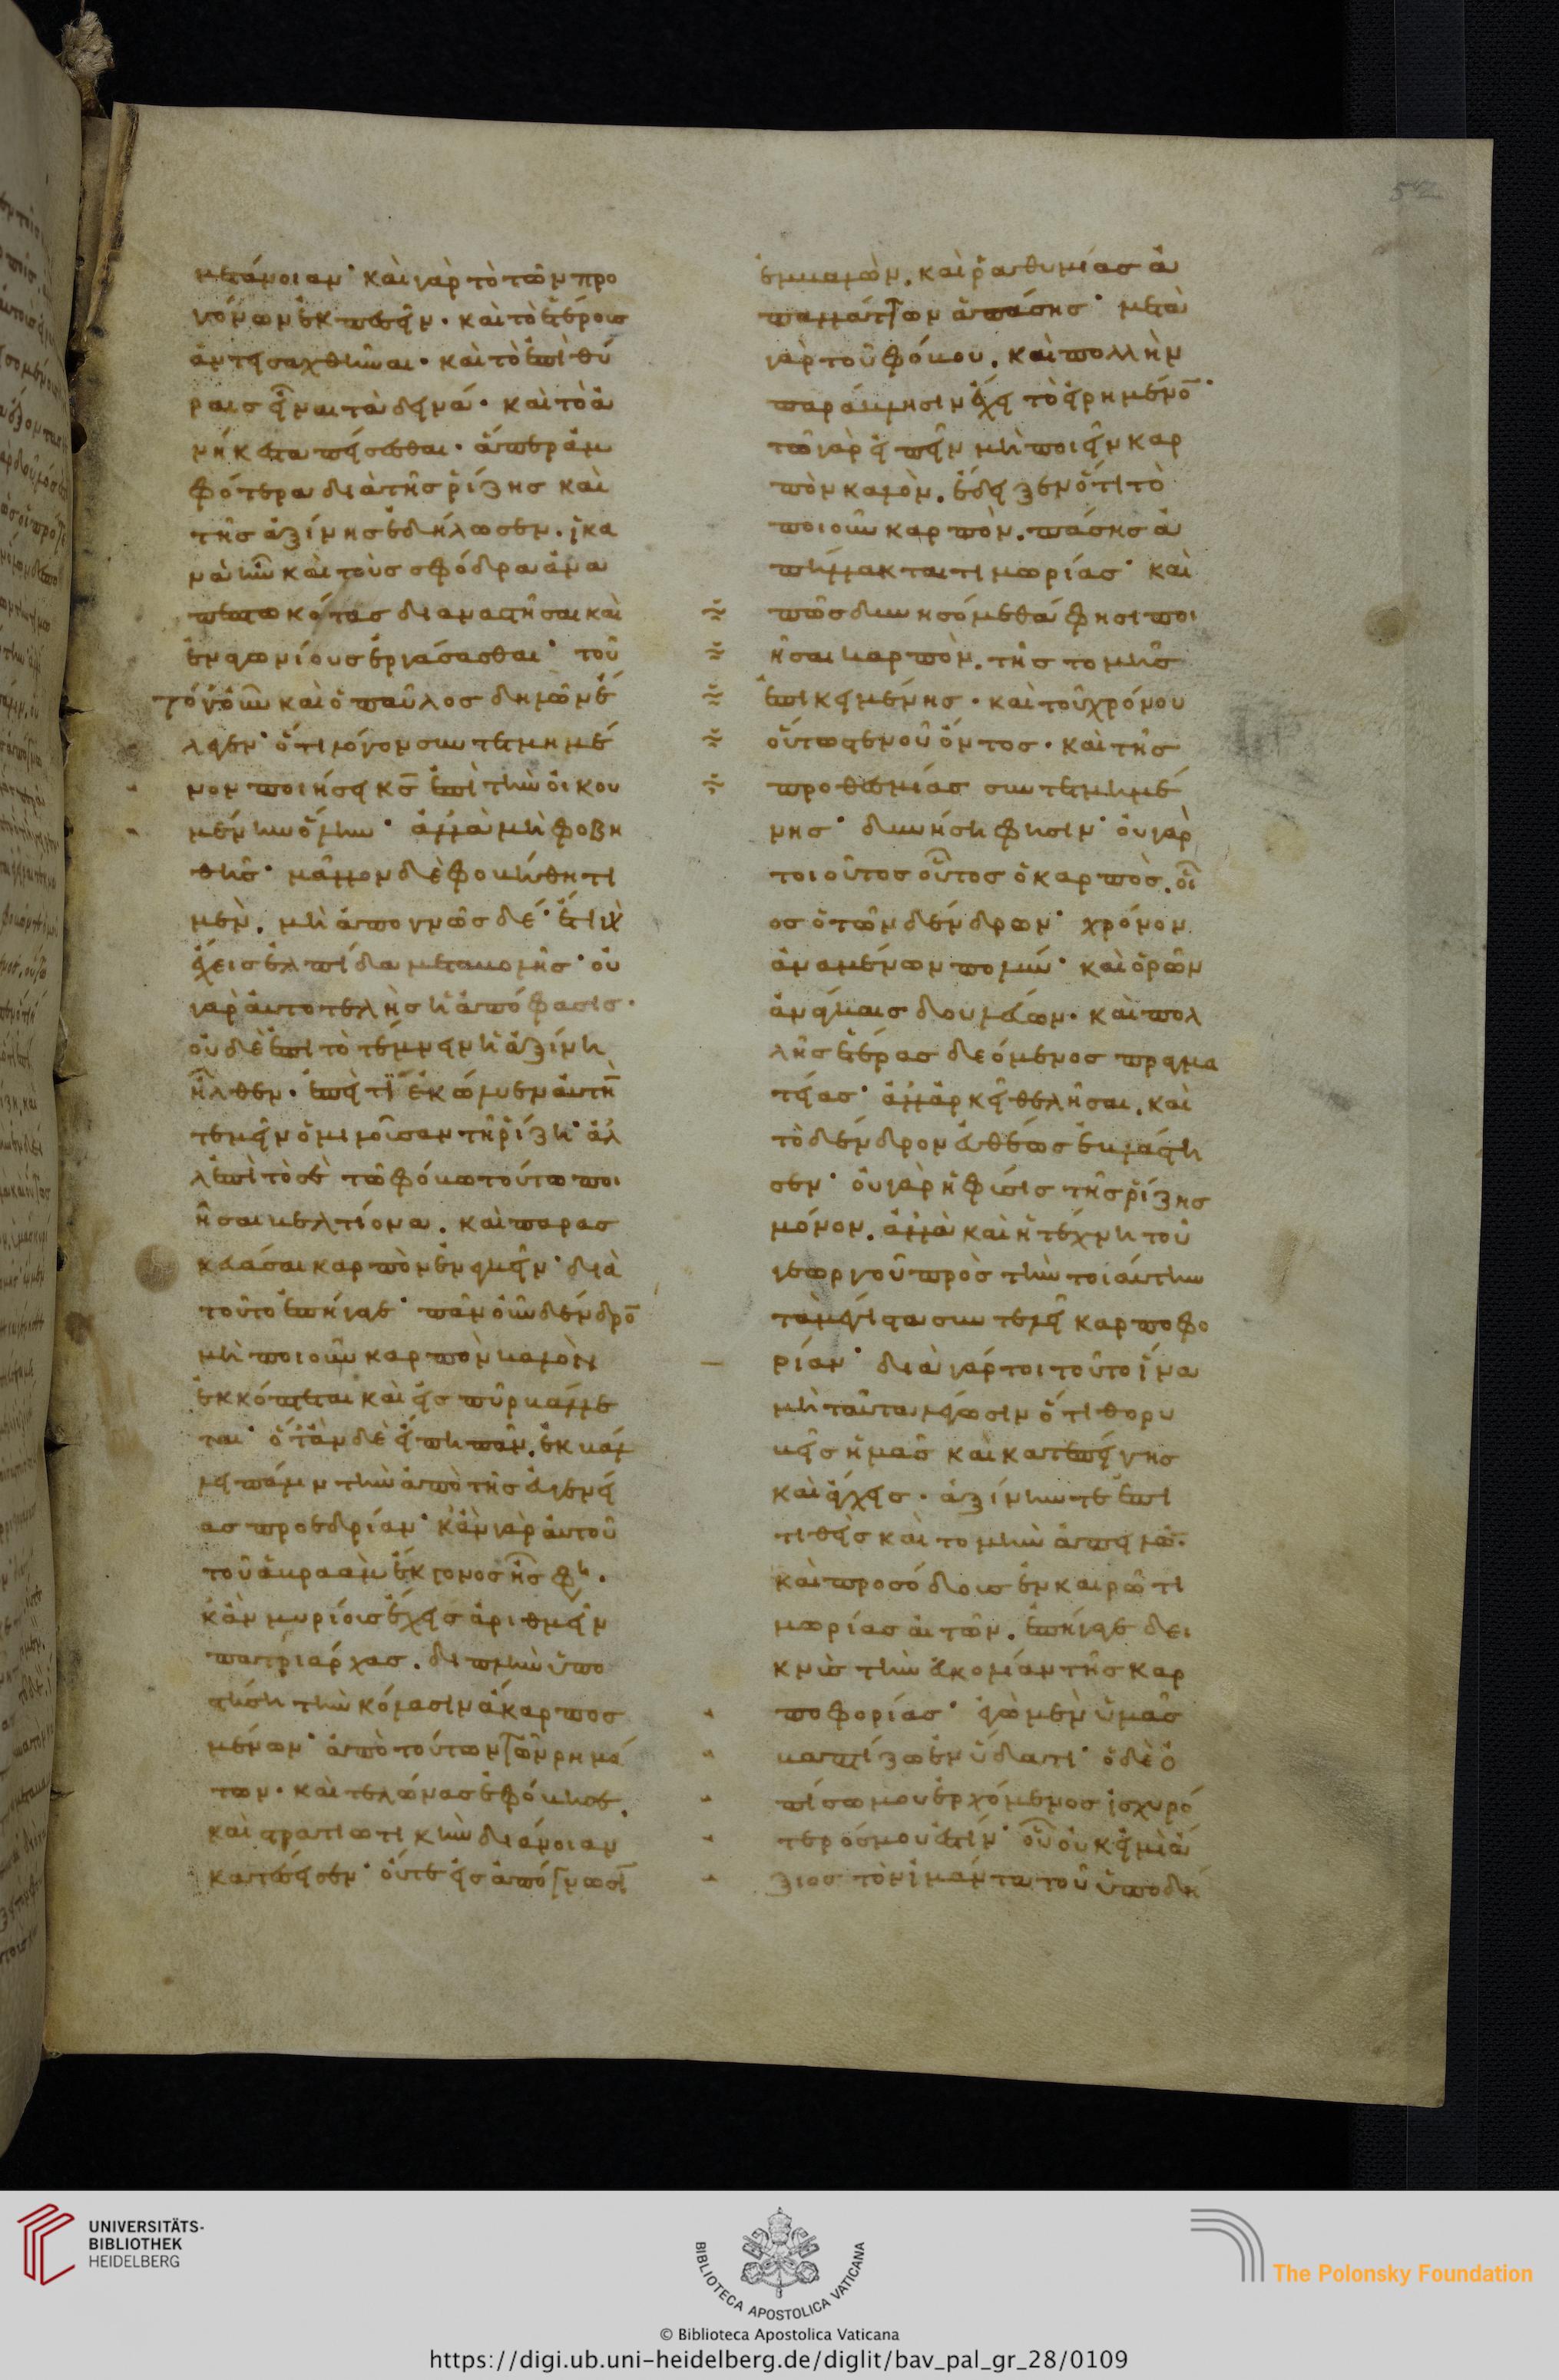 μετάνοιαν· καὶ γὰρ τὸ τῶν προ
γόνων ἐκπεσεῖν· καὶ τὸ ἑτέρους
ἀντεισαχθῆναι· καὶ τὸ ἐπὶ θύ
ραις εἶναι τὰ δεινά· καὶ τὸ ἀ
νήκεστα πείσεσθαι· ἅπερ ἀμ
φότερα διὰ τῆς ῥίζης καὶ
τῆς ἀξίνης ἐδήλωσεν· ἱκα
νὰ ἦν καὶ τοὺς σφόδρα ἀνα
πεπτωκότας διαναστῆσαι καὶ
ἐναγωνίους ἐργάσασθαι· τοῦ
το γοῦν καὶ ὁ παῦλος δηλῶν ἔ
λεγεν· ὅτι λόγον συντετμημέ
νον ποιήσει κς̄ ἐπὶ τὴν οἰκου
μένην ὅλην· ἀλλὰ μὴ φοβη
θῆς· μᾶλλον δὲ φοβήθητι
μὲν, μὴ ἀπογνῶς δέ· ἔτι γὰρ
ἔχεις ἐλπίδα μεταβολῆς· οὐ
γὰρ αὐτοτελὴς ἡ ἀπόφασις·
οὐδὲ ἐπὶ τὸ τέμνειν ἡ ἀξίνη
ἦλθεν· ἐπεὶ τί ἐκώλυεν αὐτὴ̄
τεμεῖν ὁμιλοῦσαν τῆ ῥίζη· ἀλ
λ ἐπὶ τὸ σὲ τῶ φόβω τούτω ποι
ῆσαι βελτίονα, καὶ παρασ
κευάσαι καρπὸν ἐνεγκεῖν· διὰ
τοῦτο ἐπήγαγε· πᾶν οὖν δένδρο̄
μὴ ποιοῦν καρπὸν καλὸν
ἐκκόπτεται καὶ εἰς πῦρ βάλλε
ται· ὅταν δὲ εἴπη πᾶν, ἐκβάλ
λει πάλιν τὴν ἀπὸ τῆς εὐγενεί
ας προεδρίαν· κἂν γὰρ αὐτοῦ
τοῦ ἀβραὰμ ἔκγονος ἦς φη·
κἂν μυρίους ἔχεις ἀριθμεῖν
πατριάρχας, διπλῆν ὑπο
στήση τὴν κόλασιν ἄκαρπος
μένων· ἀπὸ τούτων τῶν ῥημά
των· καὶ τελώνας ἐφόβησε,
καὶ στρατιωτικὴν διάνοιαν
κατέσεισεν· οὔτε εἰς ἀπόγνωσῑ
ἐμβαλὼν, καὶ ῥαθυμίας ἀ
παλλάττων ἁπάσης· μετὰ
γὰρ τοῦ φόβου, καὶ πολλὴν
παράκλησιν ἔχει τὸ εἰρημένο̄·
τῶ γὰρ εἰπεῖν μὴ ποιεῖν καρ
πὸν καλὸν, ἔδειξεν ὅτι τὸ
ποιοῦν καρπὸν, πάσης ἀ
πήλλακται τιμωρίας· καὶ
πῶς δυνησόμεθά φησι ποι
ῆσαι καρπὸν, τῆς τομῆς
ἐπικειμένης· καὶ τοῦ χρόνου
οὕτω στενοῦ ὄντος· καὶ τῆς
προθεσμίας συντετμημέ
νης· δυνήση φησίν· οὐ γὰρ
τοιοῦτος οὗτος ὁ καρπὸς, οἷ
ος ὁ τῶν δένδρων· χρόνον
ἀναμένων πολύν· καὶ ὡρῶν
ἀνάγκαις δουλεύων· καὶ πολ
λῆς ἑτέρας δεόμενος πραγμα
τείας· ἀλλ ἀρκεῖ θελῆσαι, καὶ
τὸ δένδρον εὐθέως ἐβλάστη
σεν· οὐ γὰρ ἡ φύσις τῆς ῥίζης
μόνον, ἀλλὰ καὶ ἡ τέχνη τοῦ
γεωργοῦ πρὸς τὴν τοιαύτην
τὰ μέγιστα συντελεῖ καρποφο
ρίαν· διὰ γάρτοι τοῦτο ἵνα
μὴ ταῦτα λέγωσιν ὅτι θορυ
βεῖς ἡμᾶς καὶ κατεπείγεις
καὶ ἄγχεις· ἀξίνην τε ἐπι
τιθεὶς καὶ τομὴν ἀπειλῶ̄·
καὶ προσόδους ἐν καιρῶ τι
μωρίας αἰτῶν, ἐπήγαγε δει
κνὺς τὴν εὐκολίαν τῆς καρ
ποφορίας· ἐγὼ μὲν ὑμᾶς
βαπτίζω ἐν ὕδατι· ὁ δὲ ὀ
πίσω μου ἐρχόμενος ἰσχυρό
τερός μου ἐστίν· οὗ οὐκ εἰμὶ ἄ
ξιος τὸν ἱμάντα τοῦ ὑποδή
UNIVERSITÄTS-
BIBLIOTHEK
HEIDELBERG
BIBLIOTECA APOSTOLICA VATICANA
The Polonsky Foundation
© Biblioteca Apostolica Vaticana
https://digi.ub.uni-heidelberg.de/diglit/bav_pal_gr_28/0109